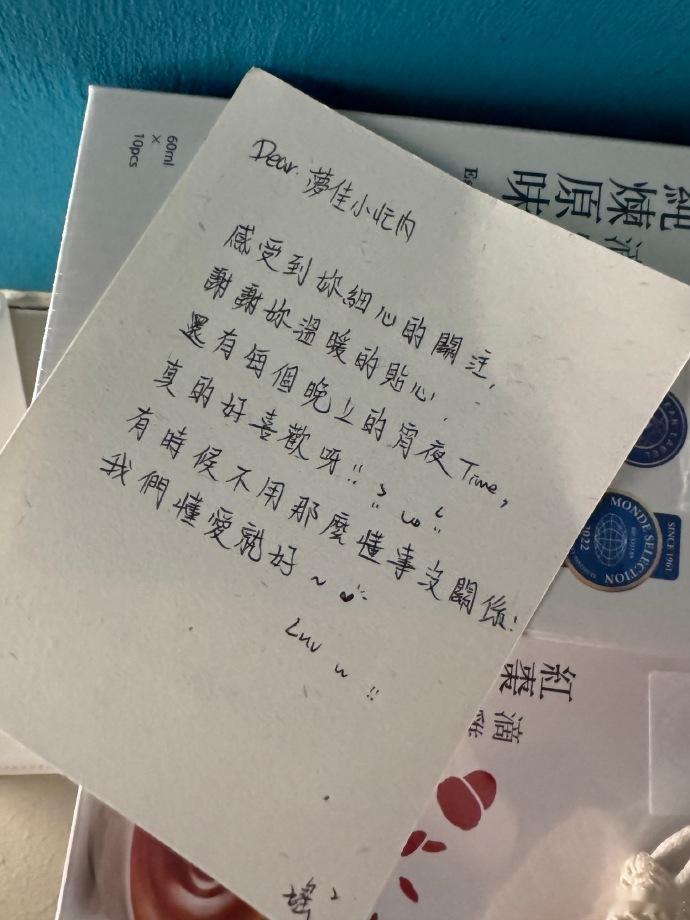 Dear. 夢佳小忙內
感受到妳細心的關注,
謝謝妳溫暖的貼心,
還有每個晚上的宵夜Time,
真的好喜歡呀!!
有時候不用那麼懂事沒關係!
我們懂愛就好~
Luv u !!
60ml
×
10pcs
純煉原味
滴
MONDE SELECTION
2022
SINCE 1961
LABEL
紅棗
滴雞